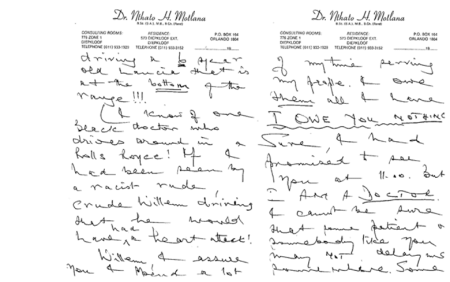 Dr. Nthato H. Motlana
B.Sc. (S.A.), M.B., B.Ch. (Rand)
CONSULTING ROOMS:
776 ZONE 1
DIEPKLOOF
TELEPHONE (011) 933-1925
RESIDENCE
DIEPKLOOF EXT.
DIEPKLOOF
P.O. BOX 164
ORLANDO 1804
driving a 6 year
old Lancia that is
at the bottom of the
range!!!
I know of one
black doctor who
drives around in a
Rolls Royce! If I
had been seen by
a racist rude,
crude Willem driving
that he would
had
have a heart attack!
Willem, I assure
you I spend a lot
Dr. Nthato H. Motlana
B.Sc. (S.A.), M.B., B.Ch. (Rand)
CONSULTING ROOMS:
776 ZONE 1
DIEPKLOOF
RESIDENCE
DIEPKLOOF EXT.
DIEPKLOOF
P.O. BOX 164
ORLANDO 1804
of my time serving
my people. I owe
them all I have
I OWE YOU NOTHING
Sure, I had
promised to see
you at 11.00. But
I AM A DOCTOR.
I cannot be sure
that some patient or
somebody like you
may not delay me
somewhere. Some